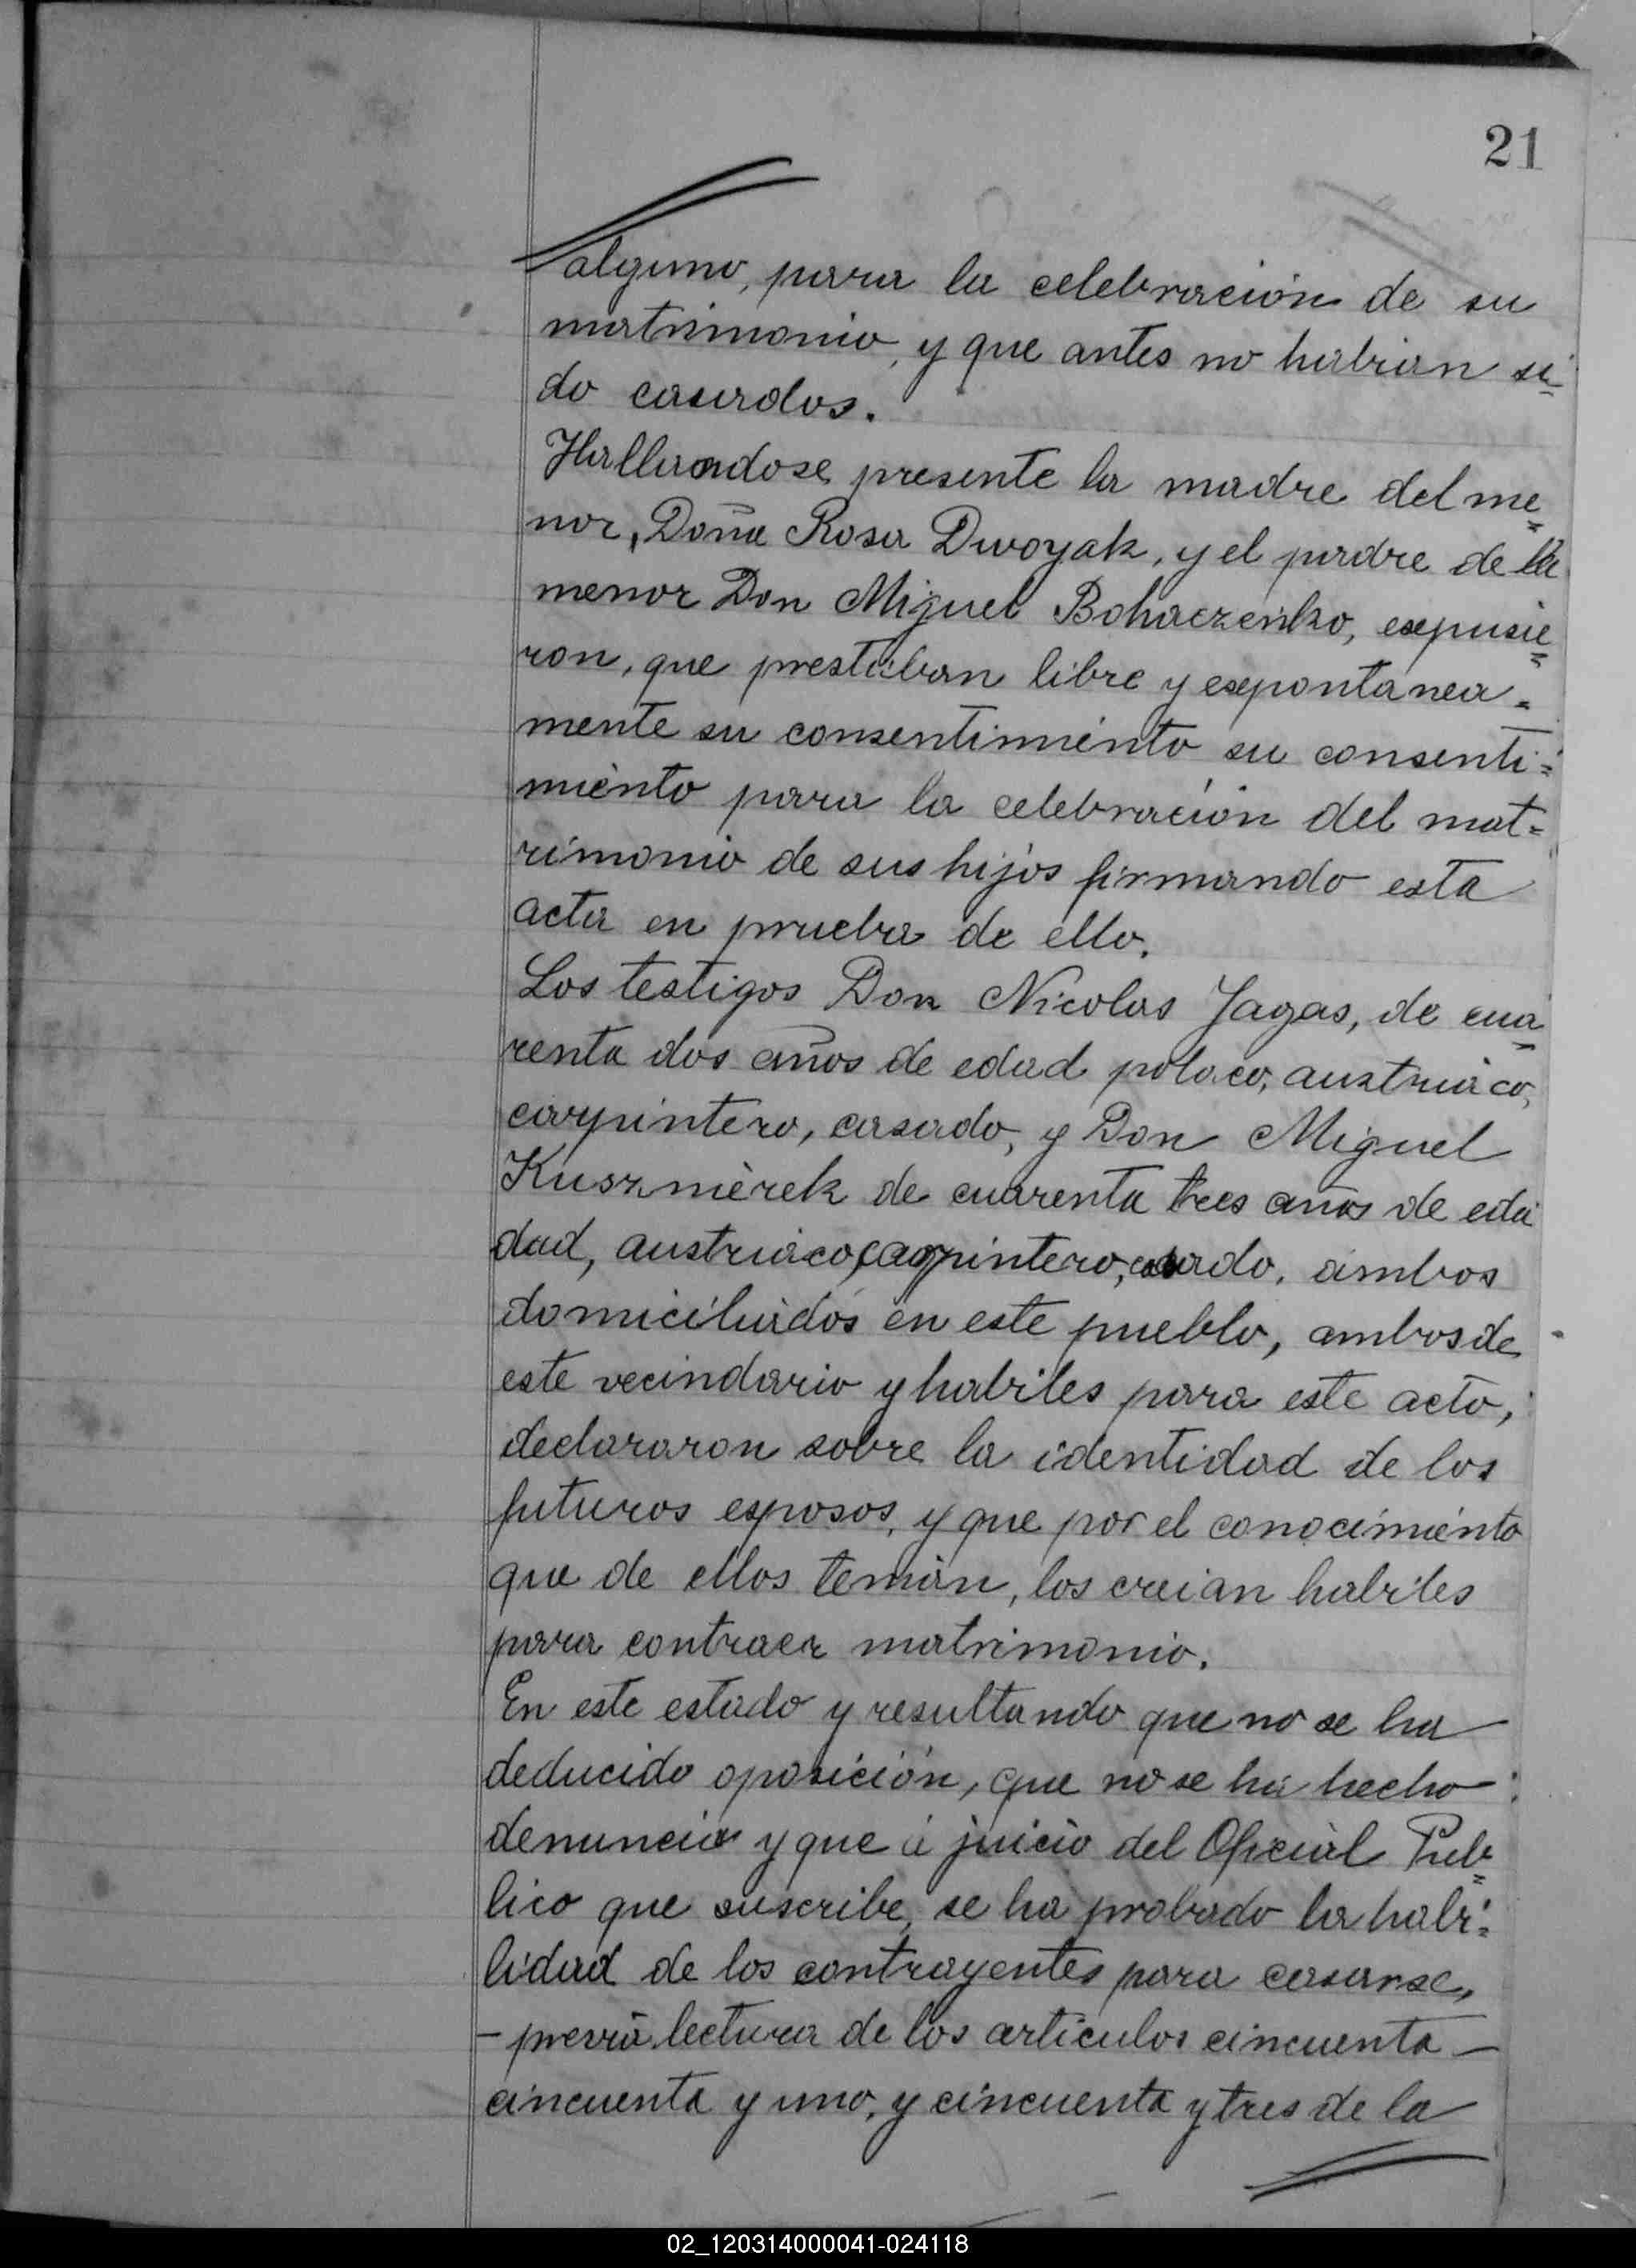 21
alguno, para la celebración de su
matrimonio, y que antes no habian si
do casados.
Hallandose presente la madre del me=
nor, Doña Rosa Dwoyak, y el padre de la
menor Don Miguel Bohaczenko, expusie=
ron, que prestaban libre y expontanea=
mente su consentimiento su consenti=
miento para la celebración del mat=
rimonio de sus hijos firmando esta
acta en prueba de ello.
Los testigos Don Nicolas Jagas, de cua=
renta dos años de edad polaco, austriaco,
carpintero, casado, y Don Miguel
Kuszmierek de cuarenta tres años de eda
dad, austriaco, carpintero, casado, ambos
domiciliados en este pueblo, ambos de
este vecindario y habiles para este acto,
declararon sobre la identidad de los
futuros esposos, y que por el conocimiento
que de ellos tenian, los creian habiles
para contraer matrimonio.
En este estado y resultando que no se ha
deducido oposición, que no se ha hecho
denuncia y que á juicio del Oficial Pub=
lico que suscribe, se ha probado la habi=
lidad de los contrayentes para casarse,
- previa lectura de los articulos cincuenta -
cincuenta y uno, y cincuenta y tres de la
02_120314000041-024118